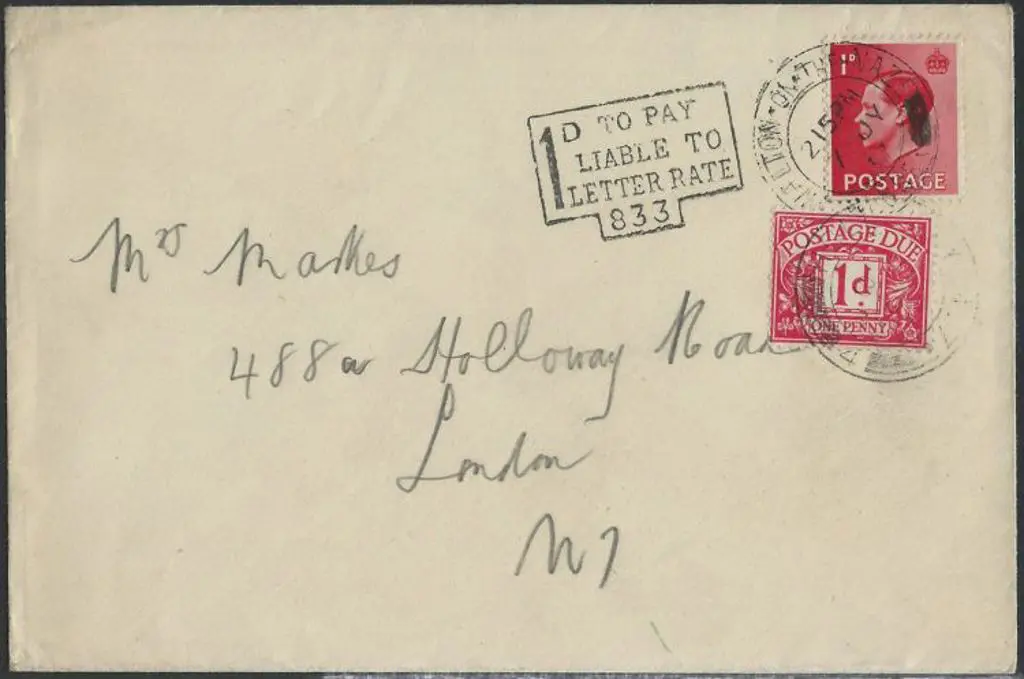 1D TO PAY
LIABLE TO
LETTER RATE
833
WALTON-ON-THE-NAZE
215PM
JY
1D
POSTAGE
POSTAGE DUE
1d
ONE PENNY
Mrs Markes
488a Holloway Road
London
N7